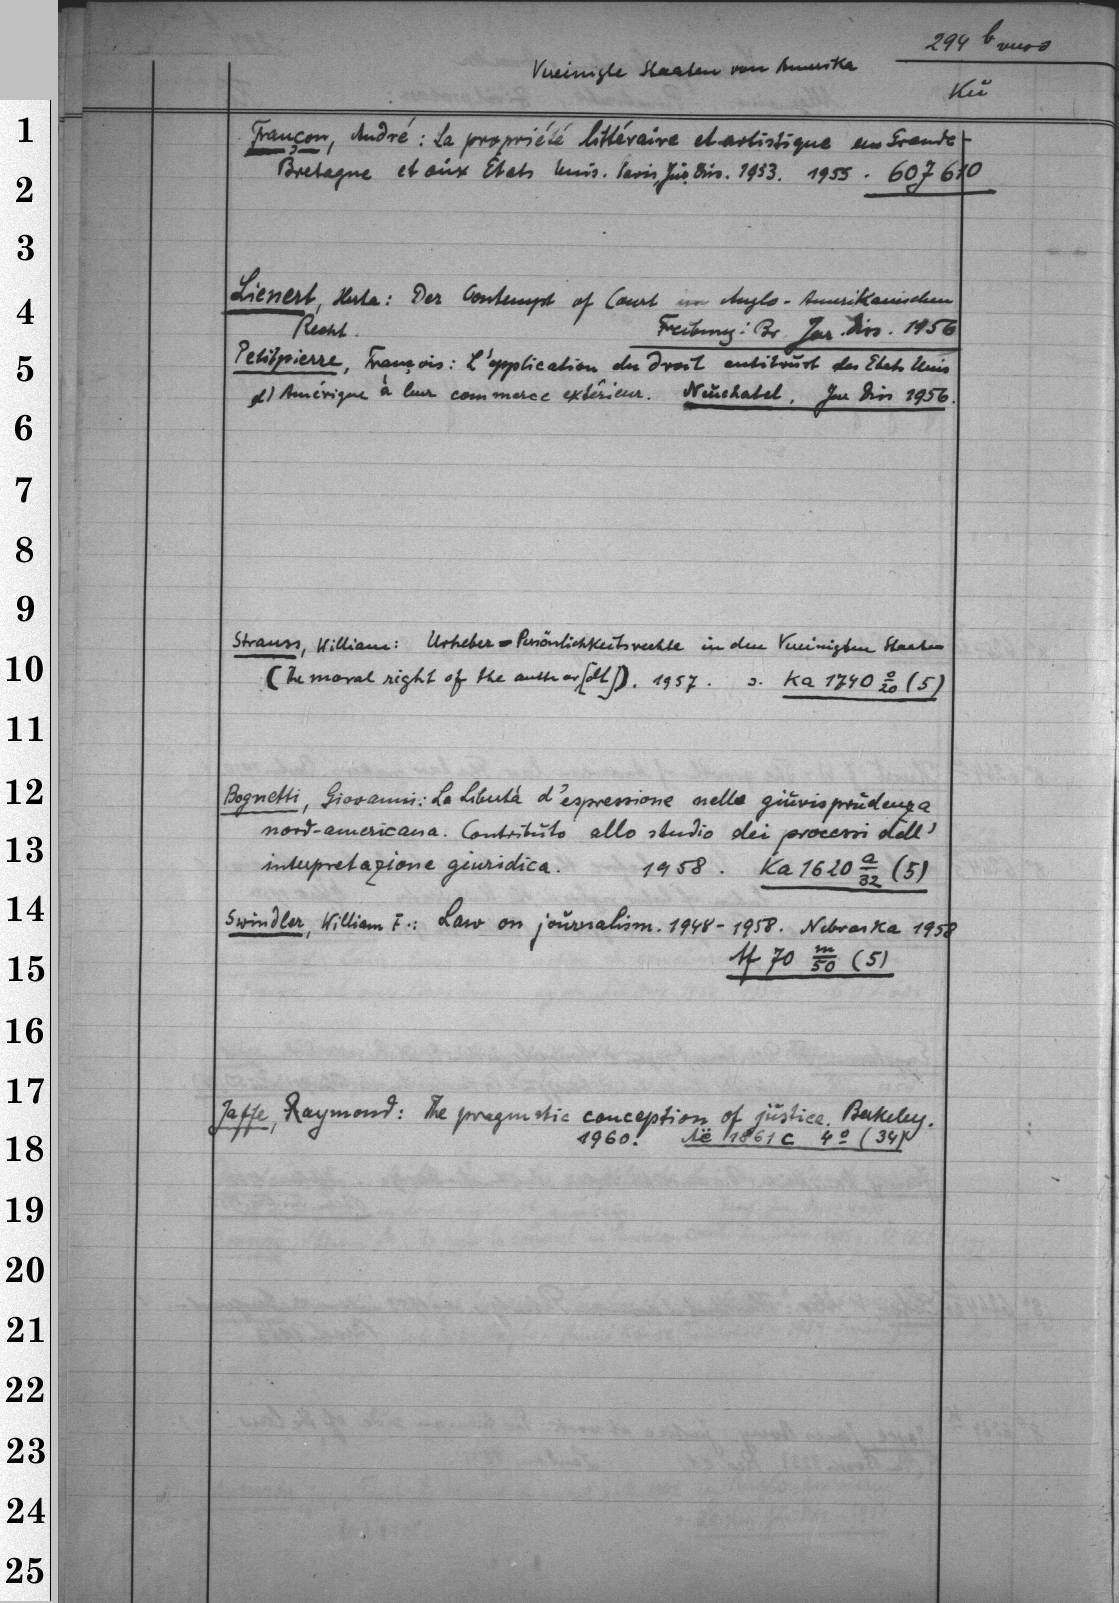 294 b verso
Vereinigte Staaten von Amerika
Kü
1
Françon, André: La propriété littéraire et artistique en Grande-
2
Bretagne et aux Etats Unis. Paris, Jur. Diss. 1953. 1955. 607 610
3
Lienert, Herta: Der Contempt of Court im Anglo-Amerikanischen
4
Recht. Freiburg i. Br. Jur. Diss. 1956
5
Petitpierre, François: L'application du droit antitrust des Etats Unis
d'Amérique à leur commerce extérieur. Neuchatel, Jur Diss 1956.
6
7
8
9
Strauss, William: Urheber=Persönlichkeitsrechte in den Vereinigten Staaten
10
(The moral right of the author [dt]). 1957. s. Ka 1740 o/20 (5)
11
12
Bognetti, Giovanni: La Libertà d'espressione nella giurisprudenza
nord-americana. Contributo allo studio dei processi dell'
13
interpretazione giuridica. 1958. Ka 1620 a/32 (5)
14
Swindler, William F.: Law on journalism. 1948-1958. Nebraska 1958
15
Af 70 m/50 (5)
16
17
Jaffe, Raymond: The pragmatic conception of justice. Berkeley.
18
1960. Aë 1861 c 4º (34)
19
20
21
22
23
24
25